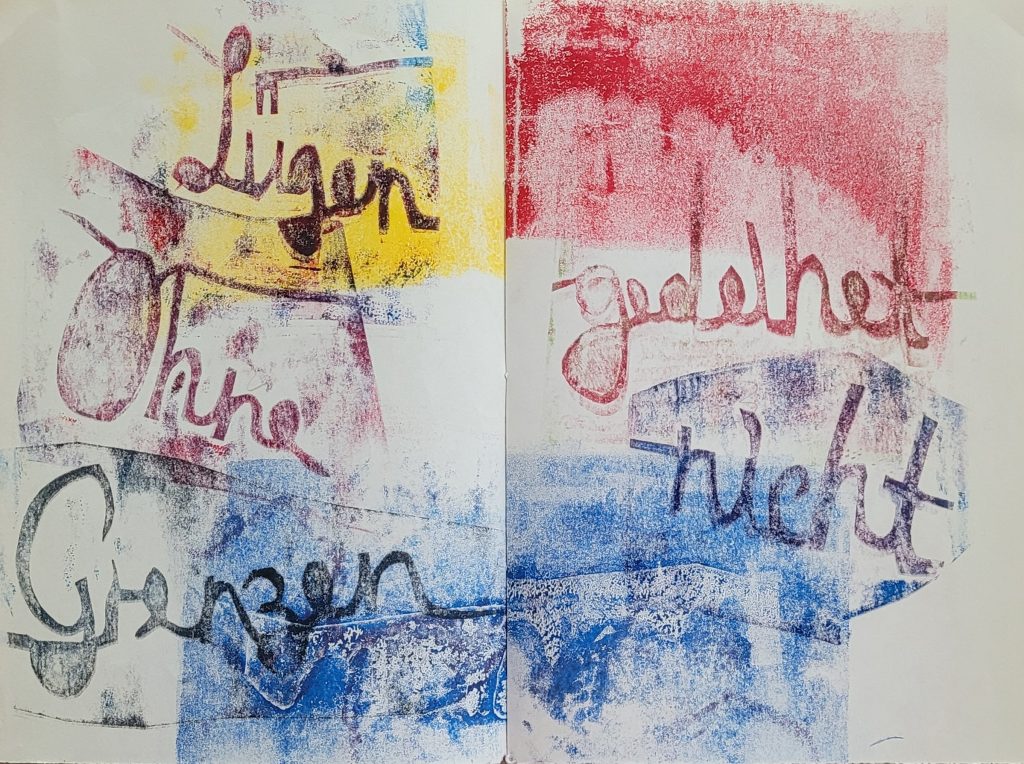 Lügen
Ohne
Grenzen
gedeihet
nicht